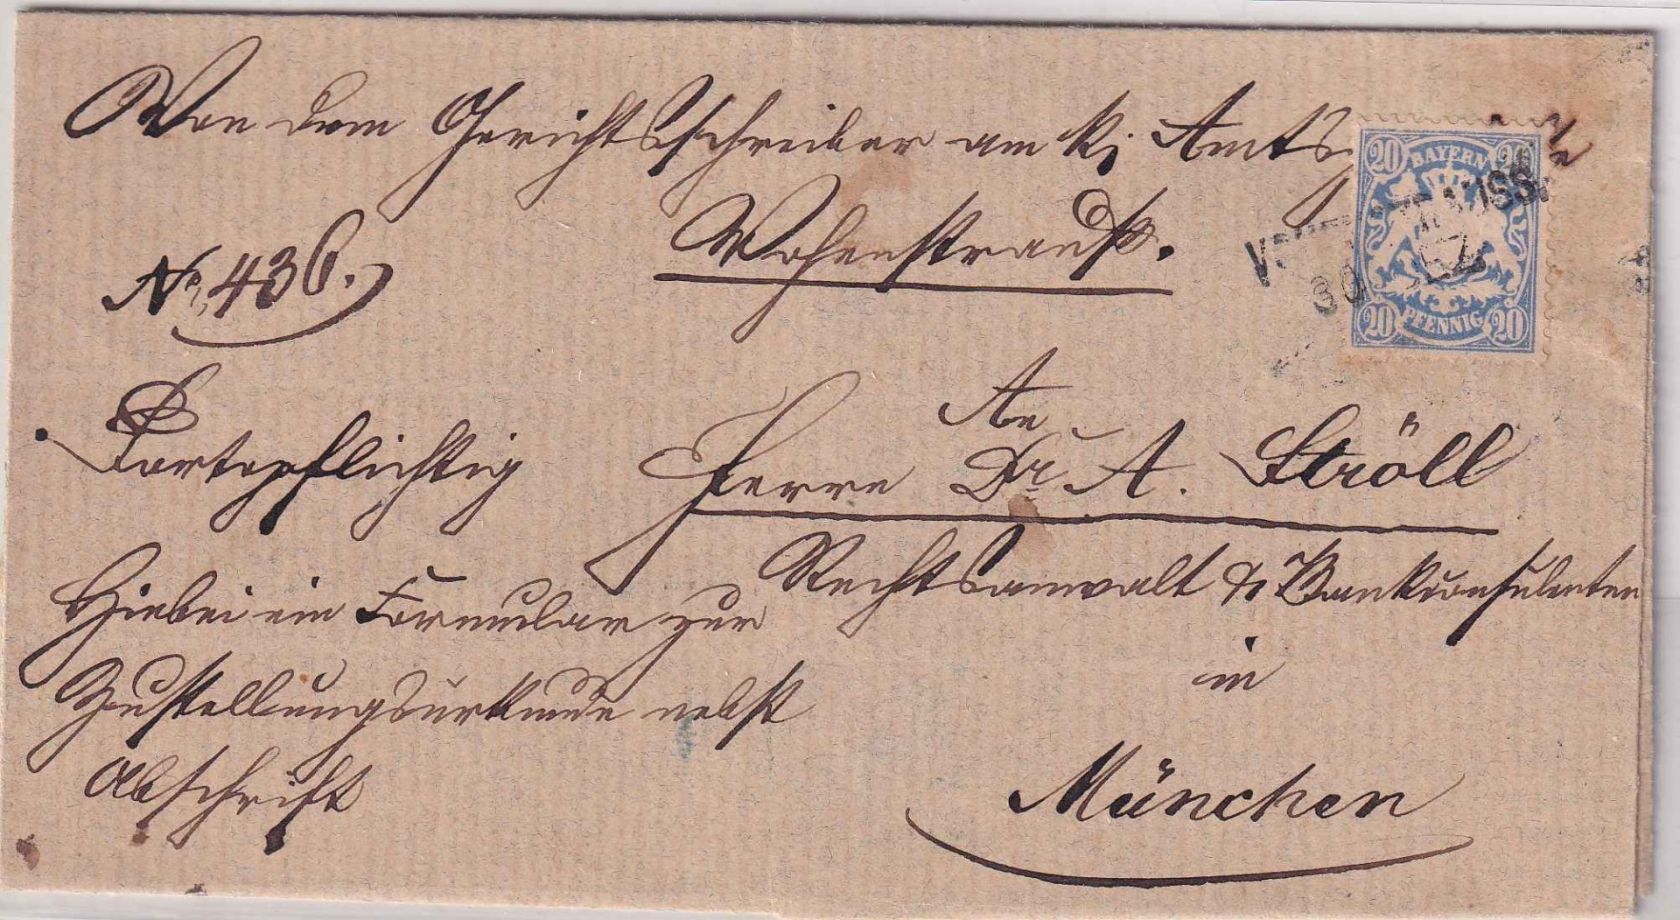 Von dem Gerichtsschreiber am k. Amtsg
Vohenstrauß.
No. 436.
20 BAYERN 20
20 PFENNIG 20
An
Portopflichtig
Herrn Dr. A. Ströll
Rechtsanwalt & Bankconsulenten
in
München
Hiebei ein Formular zur
Zustellungsurkunde nebst
Abschrift